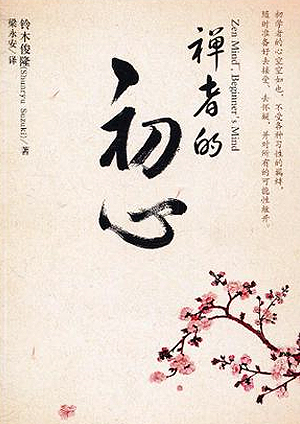 初学者的心空空如也，不受各种习性的羁绊，
随时准备好去接受、去怀疑，并对所有的可能性敞开。
禅者的
初心
Zen Mind, Beginner's Mind
铃木俊隆(Shunryu Suzuki)／著
梁永安／译